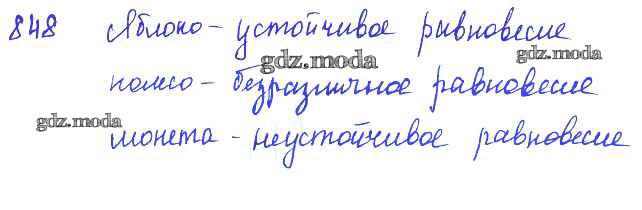 848 Яблоко - устойчивое равновесие
gdz.moda gdz.moda
колесо - безразличное равновесие
gdz.moda
монета - неустойчивое равновесие